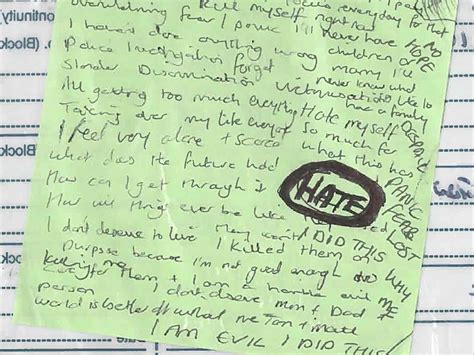 kill myself right now everyday for that
overwhelming fear / panic I'll never have NO HOPE
I haven't done anything wrong children or
Police Investigation forget marry I'll
Slander Discrimination Victimisation like to
All getting too much everything Hate myself have a family
Taking over my life everyone so much for
I feel very alone + scared what this has
What does the future hold
How can I get through it
How will things ever be like
HATE
DESPAIR
PANIC
FEAR
LOST
WHY
ME
I DID THIS
I don't deserve to live I killed them on
purpose because I'm not good enough to
care for them + I am a horrible evil
person I don't deserve mum + Dad +
world is better off without me Tom + Matt
I AM EVIL I DID THIS
ontinuity
o. (Block
(Block
Block